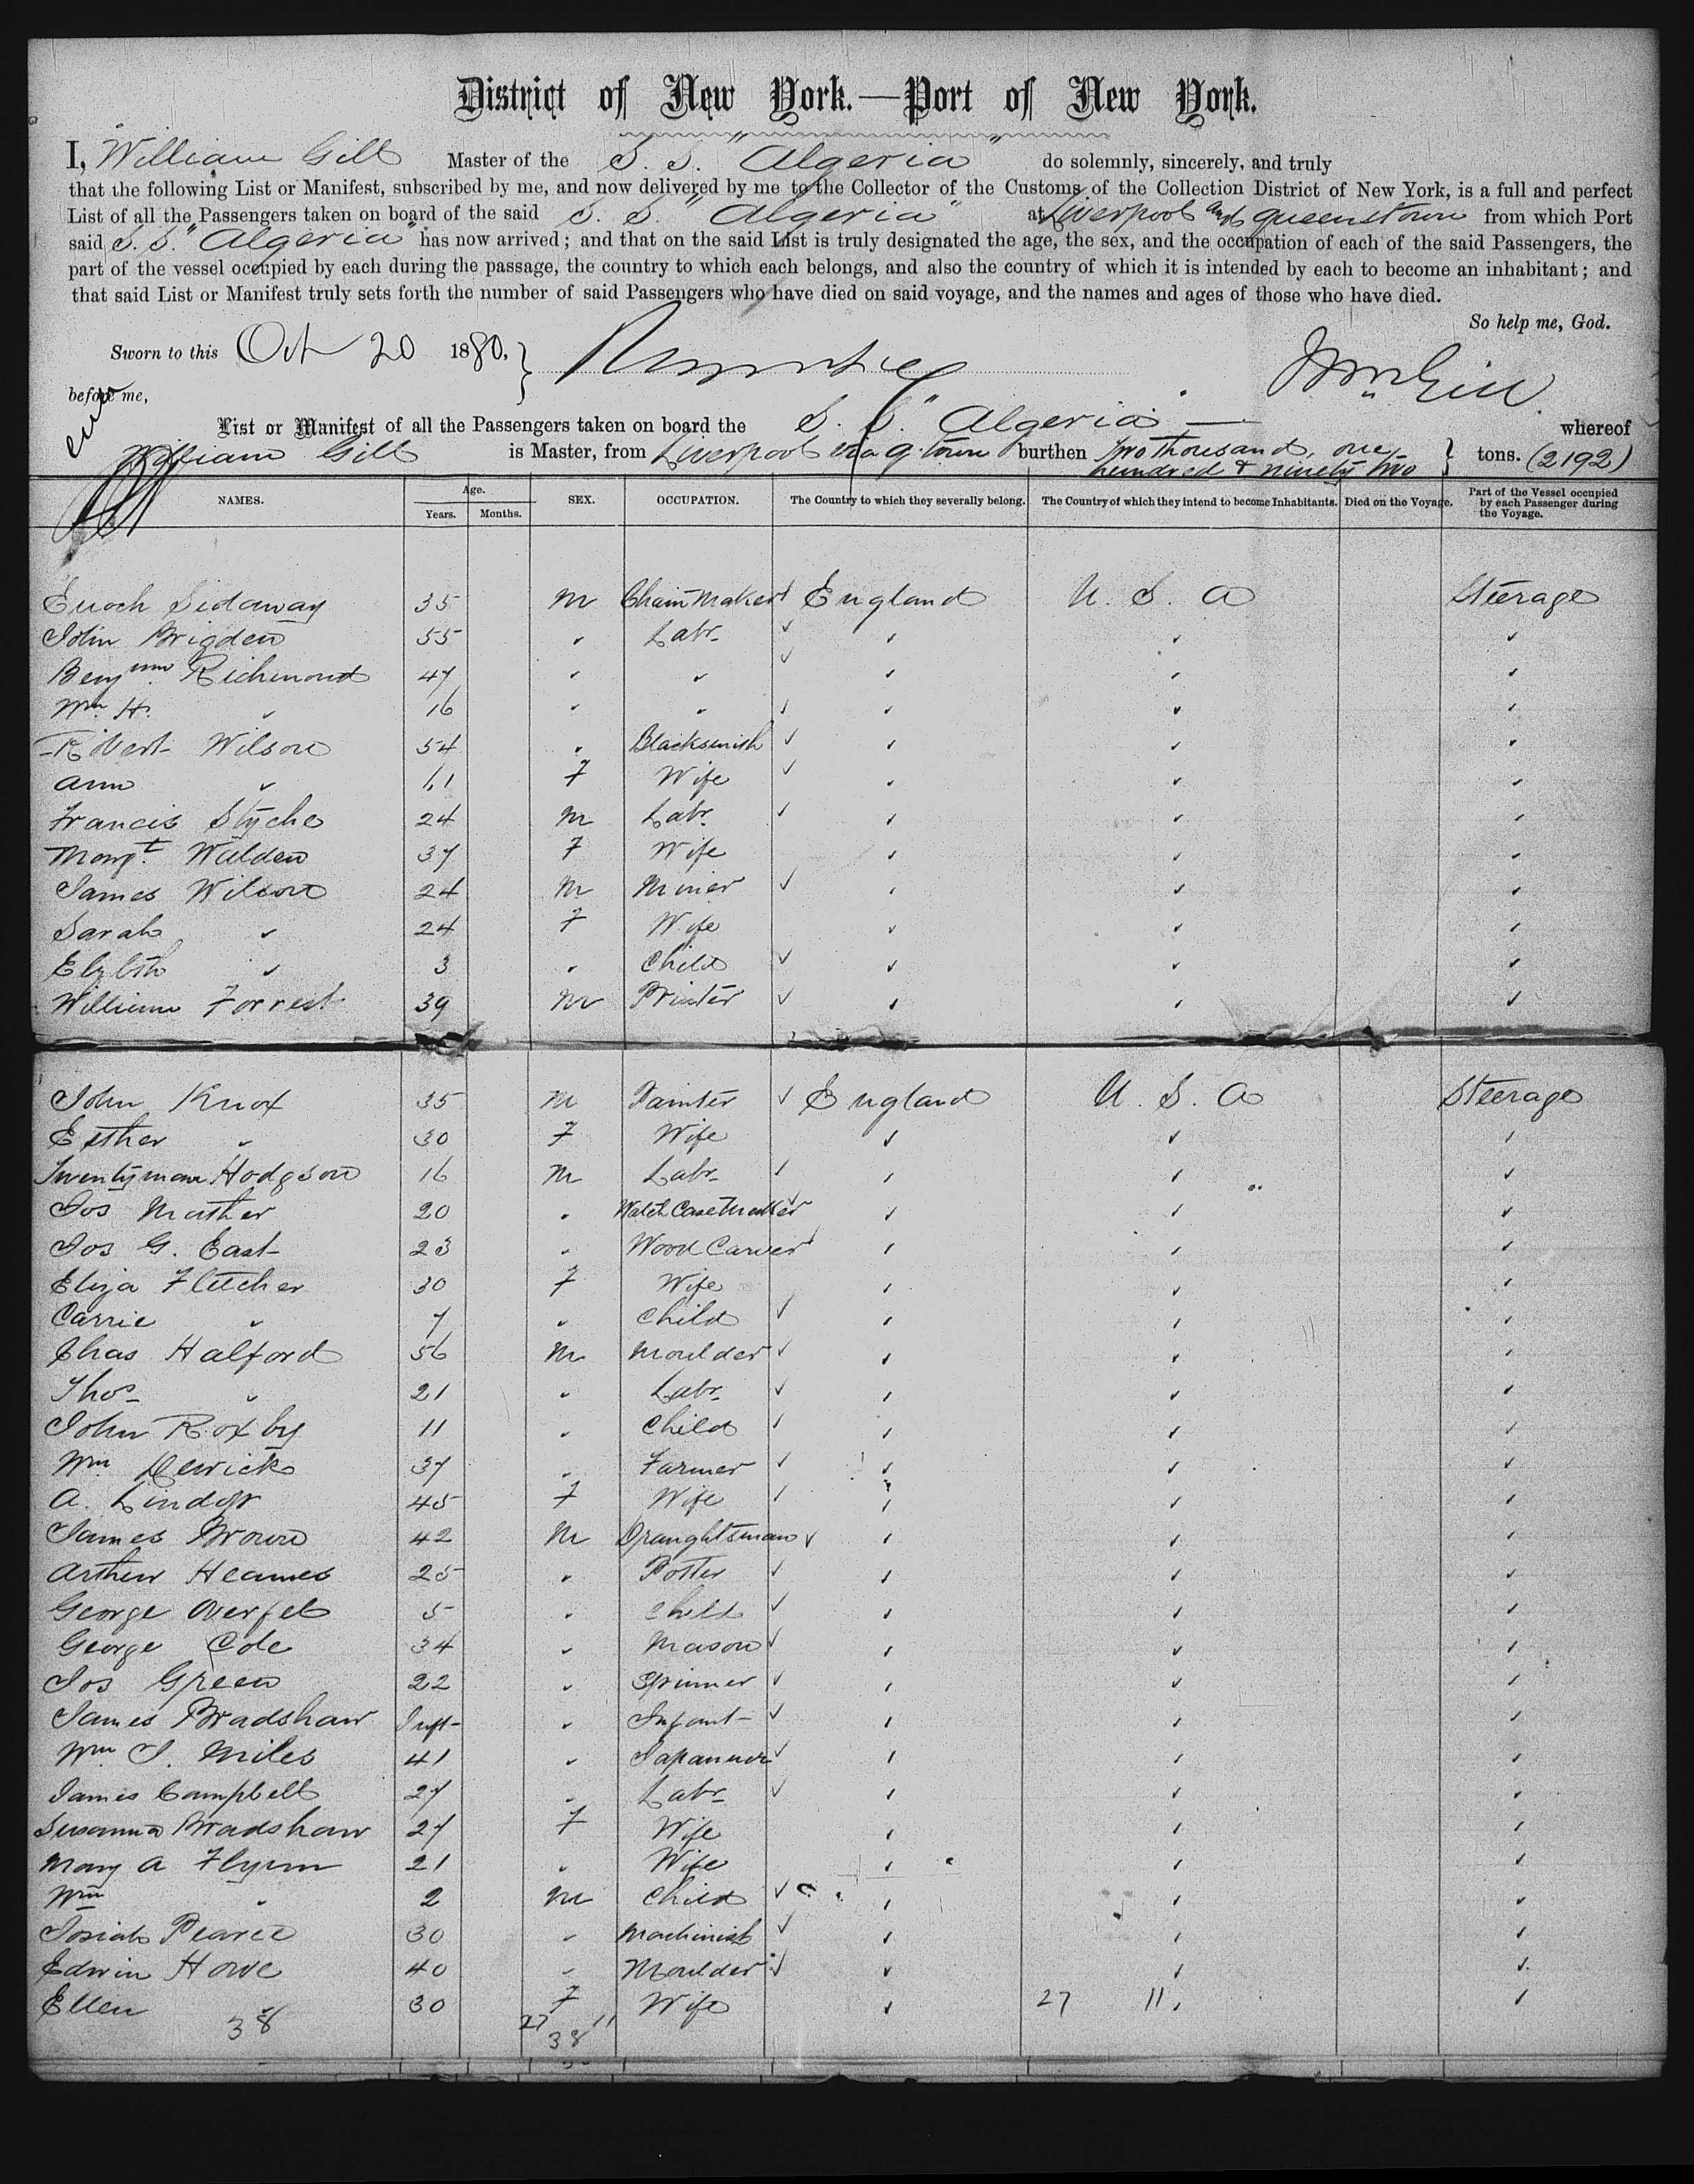 District of New York.—Port of New York.
I, William Gill Master of the S. S. "Algeria" do solemnly, sincerely, and truly
that the following List or Manifest, subscribed by me, and now delivered by me to the Collector of the Customs of the Collection District of New York, is a full and perfect
List of all the Passengers taken on board of the said S. S. "Algeria" at Liverpool and Queenstown from which Port
said S. S. "Algeria" has now arrived; and that on the said List is truly designated the age, the sex, and the occupation of each of the said Passengers, the
part of the vessel occupied by each during the passage, the country to which each belongs, and also the country of which it is intended by each to become an inhabitant; and
that said List or Manifest truly sets forth the number of said Passengers who have died on said voyage, and the names and ages of those who have died.
So help me, God.
Sworn to this Oct 20 1880. }
before me,
Wm Gill
List or Manifest of all the Passengers taken on board the S. S. "Algeria" whereof
William Gill is Master, from Liverpool via Q. town burthen Two thousand, one
hundred & ninety two } tons. (2192)
NAMES. Age. Years. Months. SEX. OCCUPATION. The Country to which they severally belong. The Country of which they intend to become Inhabitants. Died on the Voyage. Part of the Vessel occupied by each Passenger during the Voyage.
Enoch Sidaway 35 M Chain Maker ✓ England U. S. A Steerage
John Brigden 55 " Labr ✓ " " "
Benjmn Richmond 47 " " ✓ " " "
Wm H. " 16 " " ✓ " " "
Robert Wilson 54 " Blacksmith ✓ " " "
Ann " 61 F Wife ✓ " " "
Francis Styche 24 M Labr. ✓ " " "
Margt. Walden 37 F Wife " " "
James Wilson 24 M Miner ✓ " " "
Sarah " 24 F Wife " " "
Elzbth " 3 " Child ✓ " " "
William Forrest 39 M Printer ✓ " " "
John Knox 35 M Painter ✓ England U. S. A Steerage
Esther " 30 F Wife " " "
Twentyman Hodgson 16 M Labr ✓ " " "
Jos Mather 20 " Watch Case Maker ✓ " " "
Jos G. East 23 " Wood Carver ✓ " " "
Eliza Fletcher 30 F Wife " " "
Carrie " 7 " Child ✓ " " "
Chas Halford 56 M Moulder ✓ " " "
Thos " 21 " Labr ✓ " " "
John Roxby 11 " Child ✓ " " "
Wm 37 " Farmer ✓ " " "
A. 45 F Wife ✓ " " "
James Brown 42 M Draughtsman ✓ " " "
Arthur Heames 25 " Potter ✓ " " "
George 5 " Child ✓ " " "
George Cole 34 " Mason ✓ " " "
Jos Green 22 " Spinner ✓ " " "
James Bradshaw Inft " Infant ✓ " " "
Wm J. Miles 41 " Japanner ✓ " " "
James Campbell 27 " Labr ✓ " " "
Susanna Bradshaw 27 F Wife " " "
Mary A Flynn 21 " Wife " " "
Wm " 2 M Child ✓ " " "
Josiah Pearce 30 " Machinist ✓ " " "
Edwin Howe 40 " Moulder ✓ " " "
Ellen " 30 F Wife " 27 11 " "
38 27 11
38